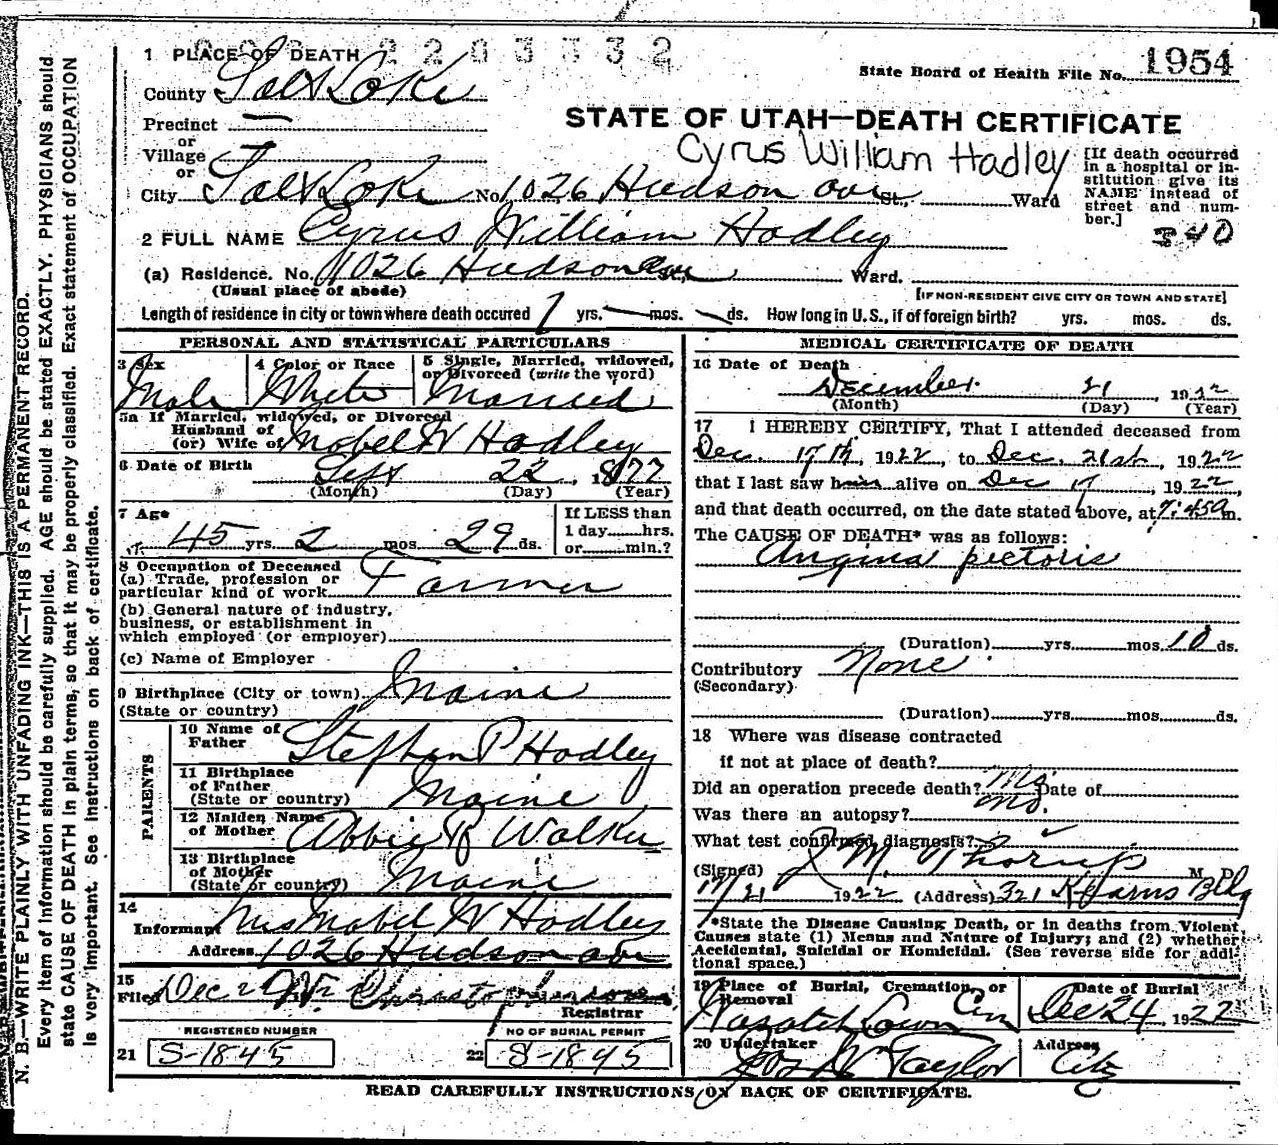 N. B.—WRITE PLAINLY WITH UNFADING INK—THIS IS A PERMANENT RECORD.
Every item of information should be carefully supplied. AGE should be stated EXACTLY. PHYSICIANS should
state CAUSE OF DEATH in plain terms, so that it may be properly classified. Exact statement of OCCUPATION
is very important. See instructions on back of certificate.
1 PLACE OF DEATH
State Board of Health File No. 1954
County Salt Lake
STATE OF UTAH—DEATH CERTIFICATE
Precinct —
or
Village —
or
Cyrus William Hadley
[If death occurred
in a hospital or in-
stitution give its
NAME instead of
street and num-
ber.]
City Salt Lake No. 1026 Hudson ave St., Ward
340
2 FULL NAME Cyrus William Hadley
(a) Residence. No. 1026 Hudson ave St., Ward.
(Usual place of abode) [IF NON-RESIDENT GIVE CITY OR TOWN AND STATE]
Length of residence in city or town where death occured 7 yrs. — mos. — ds. How long in U.S., if of foreign birth? yrs. mos. ds.
PERSONAL AND STATISTICAL PARTICULARS
3 Sex 4 Color or Race 5 Single, Married, widowed,
or Divorced (write the word)
Male White Married
5a If Married, widowed, or Divorced
Husband of
(or) Wife of Mabel W Hadley
6 Date of Birth Sept 22, 1877
(Month) (Day) (Year)
7 Age If LESS than
1 day hrs.
45 yrs 2 mos. 29 ds. or min.?
8 Occupation of Deceased
(a) Trade, profession or
particular kind of work Farmer
(b) General nature of industry,
business, or establishment in
which employed (or employer)
(c) Name of Employer
9 Birthplace (City or town) Maine
(State or country)
PARENTS
10 Name of
Father Stephen P Hadley
11 Birthplace
of Father
(State or country) Maine
12 Maiden Name
of Mother Abbie R Walker
13 Birthplace
of Mother
(State or country) Maine
14
Informant Mrs Mabel W Hadley
Address 1026 Hudson ave
15
Filed Dec
Registrar
REGISTERED NUMBER NO OF BURIAL PERMIT
21 S-1845 22 S-1845
MEDICAL CERTIFICATE OF DEATH
16 Date of Death
December 21, 1922
(Month) (Day) (Year)
17 I HEREBY CERTIFY, That I attended deceased from
Dec. 17th, 1922, to Dec. 21st, 1922
that I last saw him alive on Dec 17, 1922,
and that death occurred, on the date stated above, at 7:45a m.
The CAUSE OF DEATH* was as follows:
Angina pectoris
(Duration) yrs. mos. 10 ds.
Contributory None
(Secondary)
(Duration) yrs. mos. ds.
18 Where was disease contracted
if not at place of death?
Did an operation precede death? No Date of
Was there an autopsy? No.
What test confirmed diagnosis?
(Signed) J M. Thorup M D
12/21 1922 (Address) 321 Kearns Bldg
*State the Disease Causing Death, or in deaths from Violent
Causes state (1) Menus and Nature of Injury; and (2) whether
Accidental, Suicidal or Homicidal. (See reverse side for addi-
tional space.)
19 Place of Burial, Cremation, or
Removal
Wasatch Lawn Cem
Date of Burial
Dec 24, 1922
20 Undertaker
Jos Wm Taylor
Address
City
READ CAREFULLY INSTRUCTIONS ON BACK OF CERTIFICATE.